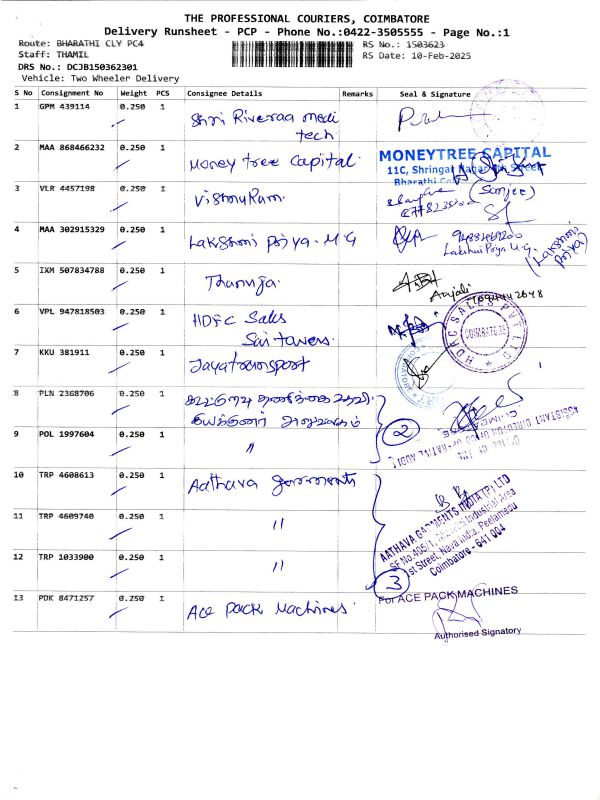 THE PROFESSIONAL COURIERS, COIMBATORE
Delivery Runsheet - PCP - Phone No.:0422-3505555 - Page No.:1
Route: BHARATHI CLY PC4
RS No.: 1503623
Staff: THAMIL
RS Date: 10-Feb-2025
DRS No.: DCJB150362301
Vehicle: Two Wheeler Delivery
S No Consignment No Weight PCS Consignee Details Remarks Seal & Signature
1 GPM 439114 0.250 1 Shri Riveraa medi
tech
2 MAA 868466232 0.250 1 Money tree Capital.
MONEYTREE CAPITAL
11C, Shringar Nagar Street
Bharathi Co
3 VLR 4457198 0.250 1 VishnuRam. (Sanjee)
4 MAA 302915329 0.250 1 Lakshmi Priya. M G 9488469200
Lakshmi Priya M.G.
(Lakshmi Priya)
5 IXM 507834788 0.250 1 Thanuja.
Anjali
6 VPL 947818503 0.250 1 HDFC Sales
Sai Towers.
HDFC SALES PVT LTD
COIMBATORE
7 KKU 381911 0.250 1 Jayatransport
8 PLN 2368706 0.250 1 கூட்டுறவு தணிக்கை உதவி
இயக்குனர் அலுவலகம்
2
ASSISTANT DIRECTOR OF CO-OPERATIVE AUDIT
9 POL 1997604 0.250 1 "
10 TRP 4608613 0.250 1 Aathava garments
AATHAVA GARMENTS INDIA (P) LTD
SF No.465/1, Industrial Area
1st Street, Nava India, Peelamedu
Coimbatore - 641 004
11 TRP 4609740 0.250 1 "
12 TRP 1033900 0.250 1 "
3
13 PDK 8471257 0.250 1 Ace Pack Machines.
For ACE PACK MACHINES
Authorised Signatory